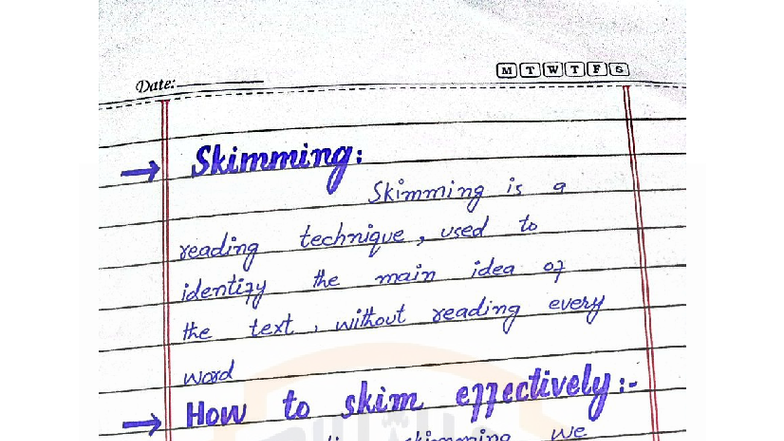 Date:
M T W T F S
→ Skimming:
Skimming is a
reading technique, used to
identify the main idea of
the text, without reading every
word
→ How to skim effectively:-
skimming, we